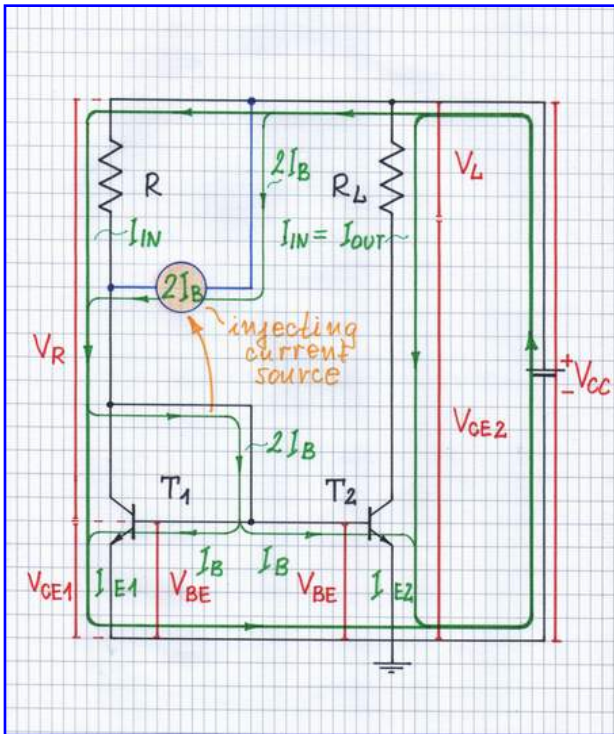 R
R_L
V_L
2I_B
I_IN
I_IN = I_OUT
2I_B
injecting
current
source
V_R
+
V_CC
−
V_CE2
2I_B
T_1
T_2
V_CE1
I_E1
I_B
V_BE
I_B
V_BE
I_E2